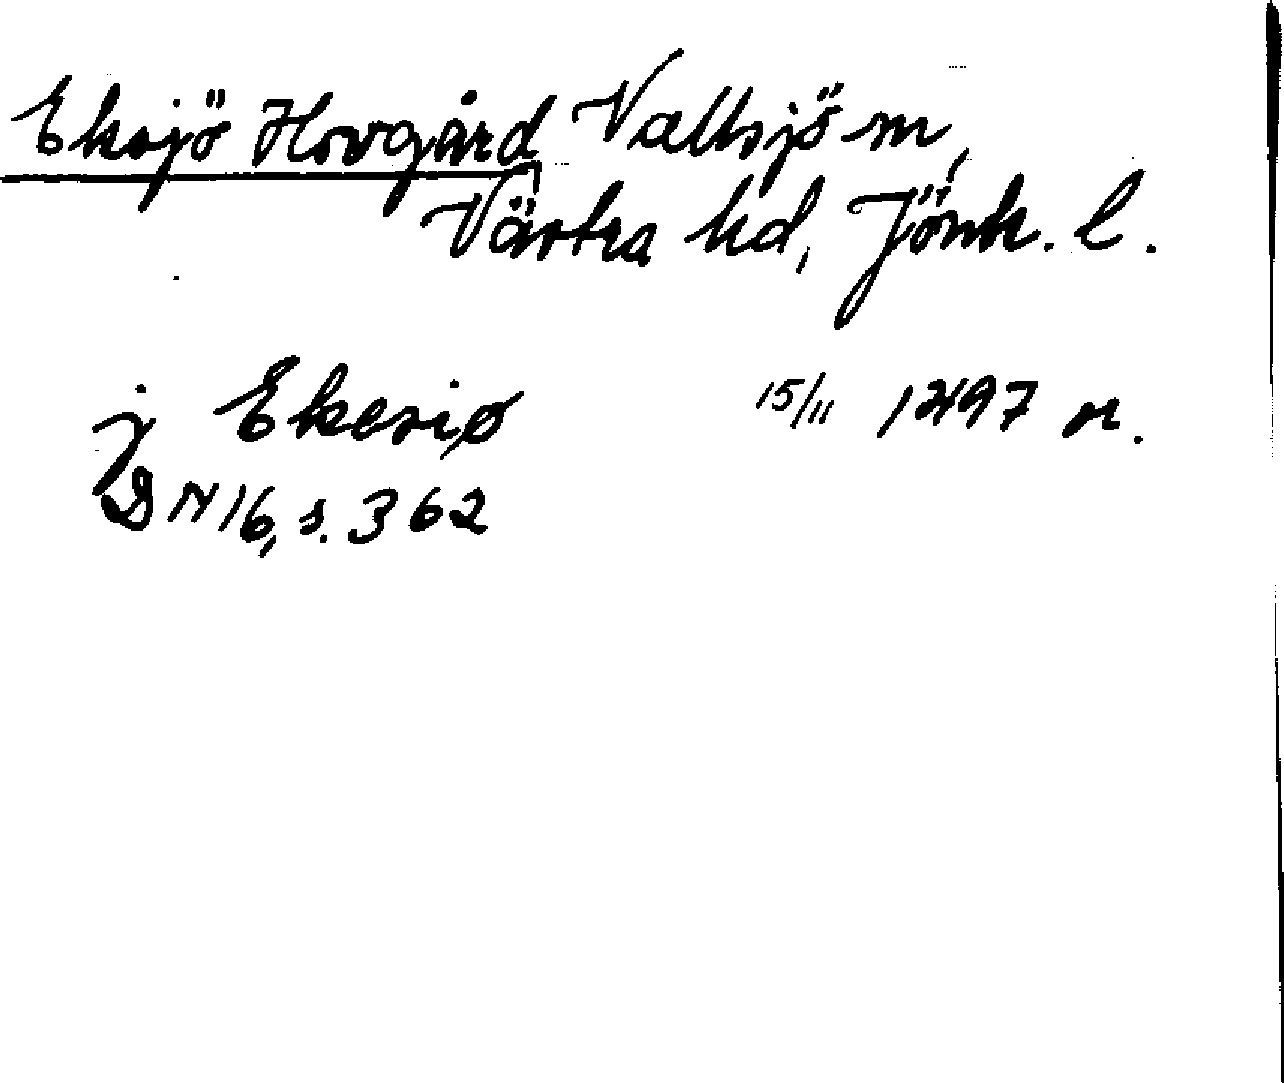 Eksjö Hovgård Vallsjö sn,
Västra hd, Jönk. l.
j Ekesiø 15/11 1497 or.
DN 16, s. 362